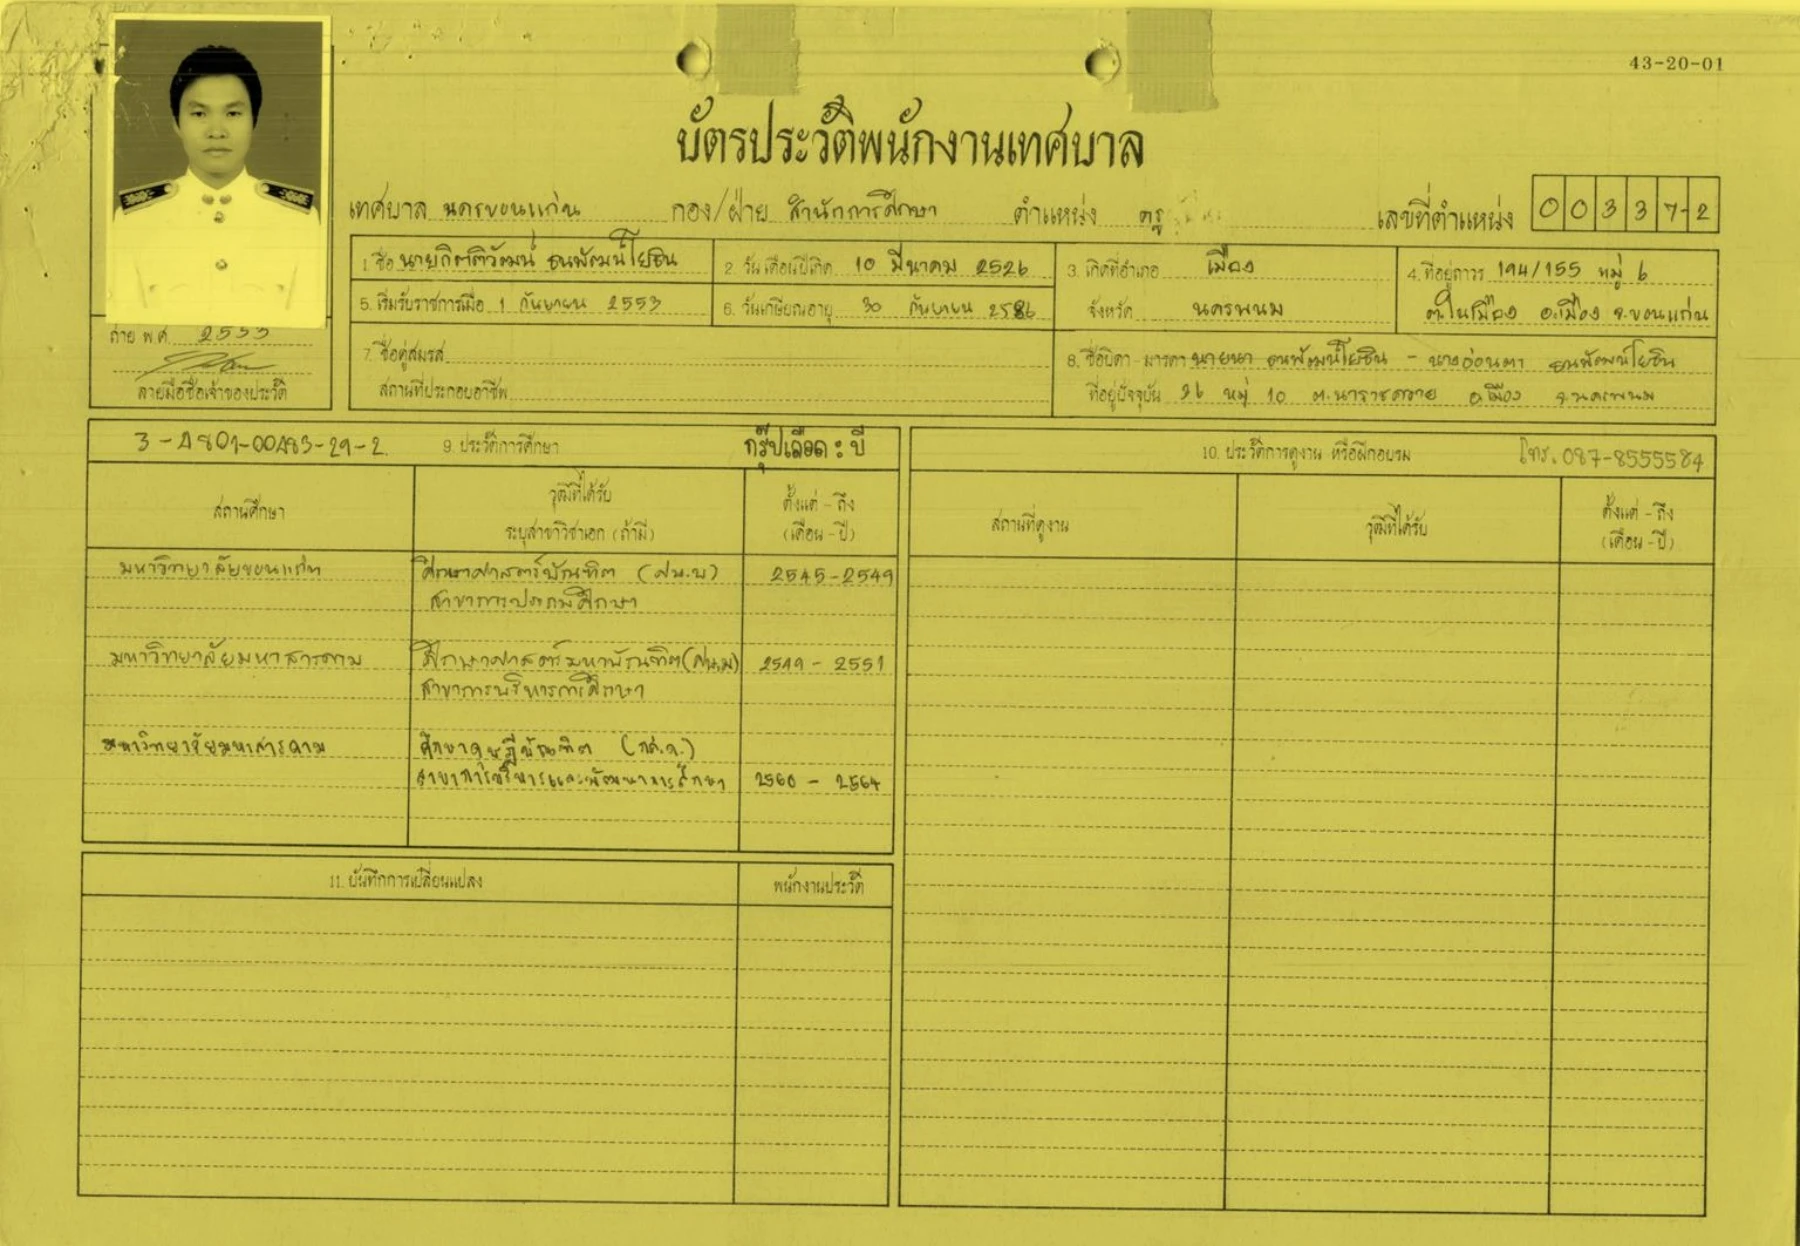 43-20-01
บัตรประวัติพนักงานเทศบาล
เทศบาล นครขอนแก่น กอง/ฝ่าย สำนักการศึกษา ตำแหน่ง ครู เลขที่ตำแหน่ง 00337-2
1. ชื่อ นายกิตติวัฒน์ ธนพัฒน์โยธิน 2. วันเดือนปีเกิด 10 มีนาคม 2526 3. เกิดที่อำเภอ เมือง 4. ที่อยู่ถาวร 194/155 หมู่ 6
5. เริ่มรับราชการเมื่อ 1 กันยายน 2553 6. วันเกษียณอายุ 30 กันยายน 2586 จังหวัด นครพนม ต.ในเมือง อ.เมือง จ.ขอนแก่น
ถ่าย พ.ศ. 2553
ลายมือชื่อเจ้าของประวัติ
7. ชื่อคู่สมรส
สถานที่ประกอบอาชีพ
8. ชื่อบิดา - มารดา นายนา ธนพัฒน์โยธิน - นางอ่อนตา ธนพัฒน์โยธิน
ที่อยู่ปัจจุบัน 26 หมู่ 10 ต.นาราชควาย อ.เมือง จ.นครพนม
3-4801-00483-29-2 9. ประวัติการศึกษา กรุ๊ปเลือด : บี
สถานศึกษา วุฒิที่ได้รับ ตั้งแต่ - ถึง
ระบุสาขาวิชาเอก (ถ้ามี) (เดือน - ปี)
มหาวิทยาลัยขอนแก่น ศึกษาศาสตร์บัณฑิต (ศษ.บ) 2545-2549
สาขาการประถมศึกษา
มหาวิทยาลัยมหาสารคาม ศึกษาศาสตร์มหาบัณฑิต (ศษ.ม) 2549 - 2551
สาขาการบริหารการศึกษา
มหาวิทยาลัยมหาสารคาม ศึกษาดุษฎีบัณฑิต (กศ.ด.)
สาขาการบริหารและพัฒนาการศึกษา 2560 - 2564
10. ประวัติการดูงาน หรือฝึกอบรม โทร. 087-8555584
สถานที่ดูงาน วุฒิที่ได้รับ ตั้งแต่ - ถึง
(เดือน - ปี)
11. บันทึกการเปลี่ยนแปลง พนักงานประวัติ